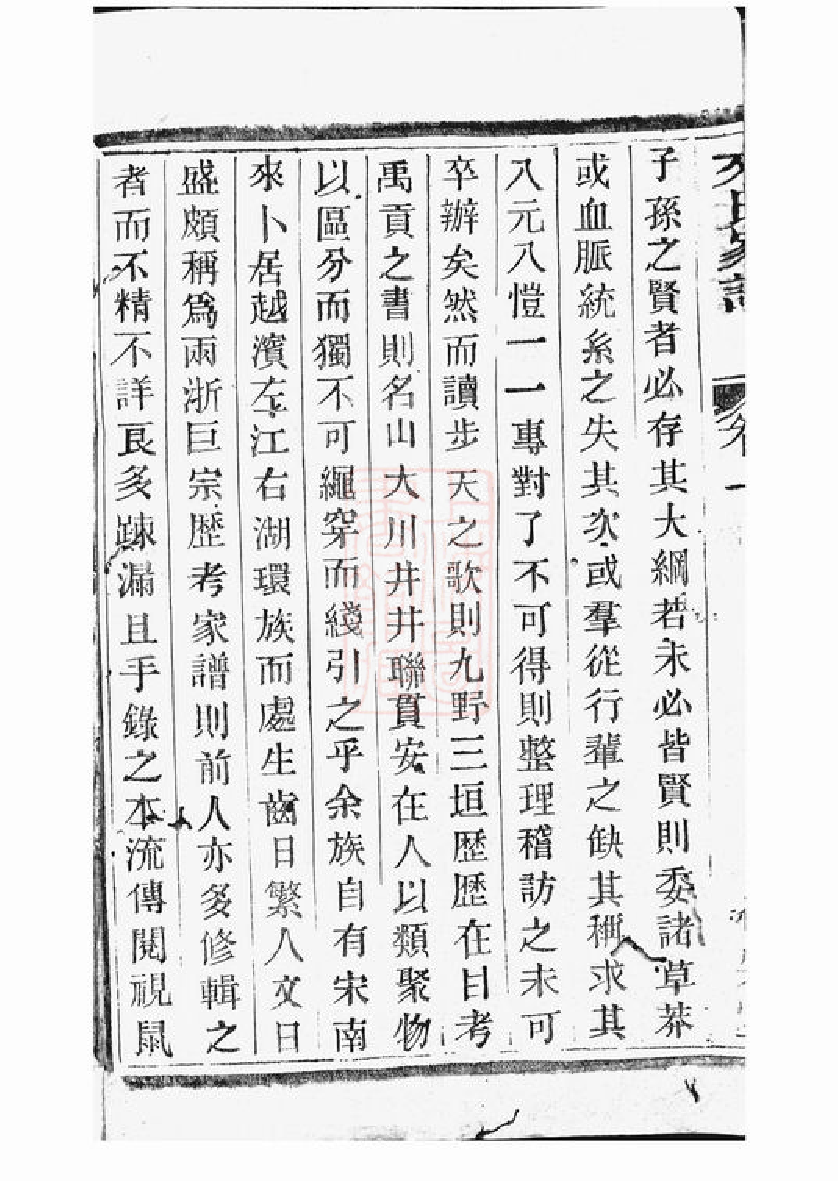 氏家譜 卷一
子孫之賢者必存其大綱若未必皆賢則委諸草莽
或血脈統系之失其次或羣從行輩之缺其稱求其
八元八愷一一專對了不可得則整理稽訪之未可
卒辦矣然而讀步天之歌則九野三垣歷歷在目考
禹貢之書則名山大川井井聯貫安在人以類聚物
以區分而獨不可繩穿而綫引之乎余族自有宋南
來卜居越濱左江右湖環族而處生齒日繁人文日
盛頗稱爲兩浙巨宗歷考家譜則前人亦多修輯之
者而不精不詳良多踈漏且手錄之本流傳閱視鼠